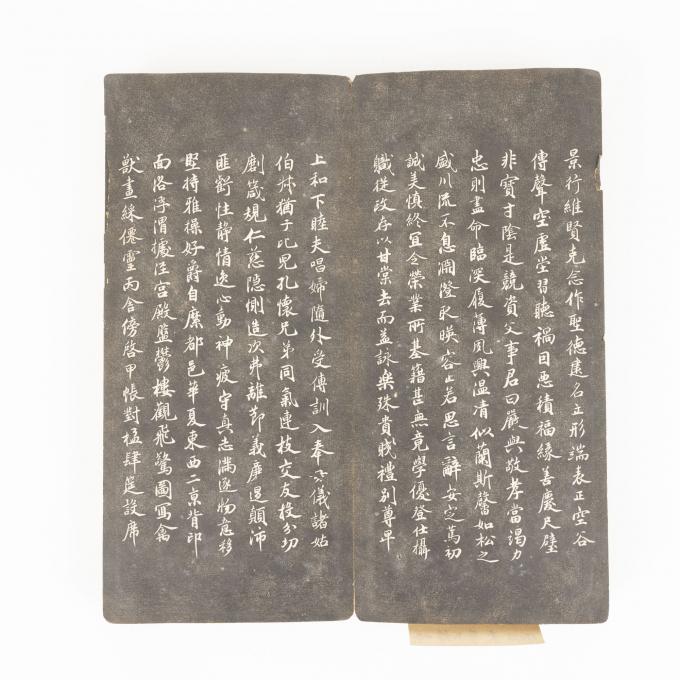 景行維賢克念作聖德建名立形端表正空谷
傳聲空虛堂習聽禍因惡積福緣善慶尺璧
非寶寸陰是競資父事君曰嚴與敬孝當竭力
忠則盡命臨深履薄夙興温凊似蘭斯馨如松之
盛川流不息淵澄取暎容止若思言辭安定篤初
誠美慎終宜令榮業所基籍甚無竟學優登仕攝
職從政存以甘棠去而益詠樂殊貴賤禮別尊卑
上和下睦夫唱婦隨外受傅訓入奉母儀諸姑
伯叔猶子比兒孔懷兄弟同氣連枝交友投分切
劘箴規仁慈隱惻造次弗離節義廉退顛沛
匪虧性靜情逸心動神疲守真志滿逐物意移
堅持雅操好爵自縻都邑華夏東西二京背邙
面洛浮渭據涇宮殿盤鬱樓觀飛驚圖寫禽
獸畫綵僊靈丙舍傍啓甲帳對楹肆筵設席